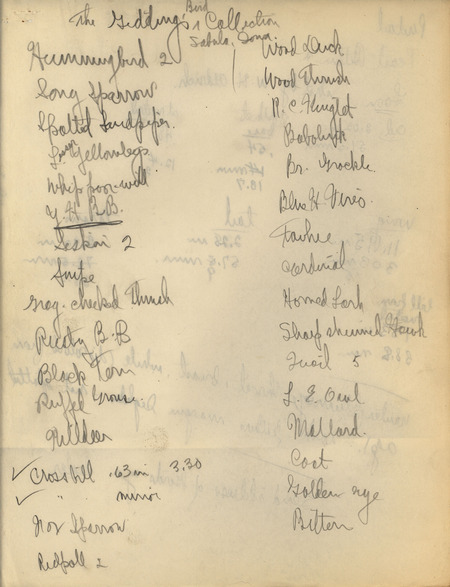 The Giddings Bird Collection
Sabula, Iowa.
Hummingbird 2
Song Sparrow
Spotted Sandpiper.
Lesser Yellowlegs
Whip-poor-will
Y. H. B. B.
2
Snipe
Gray-cheeked Thrush
Rusty B. B
Black Tern
Ruffed Grouse.
Killdeer
✓ Crossbill .63 in 3.30
✓ " minor
Sparrow
Redpoll 2
Wood Duck
Wood Thrush
R. C. Kinglet
Bobolink
Br. Grackle.
Blue H. Vireo.
Towhee
Cardinal
Horned Lark
Sharp shinned Hawk
Quail 5
L. E. Owl
Mallard.
Coot
Golden eye
Bittern